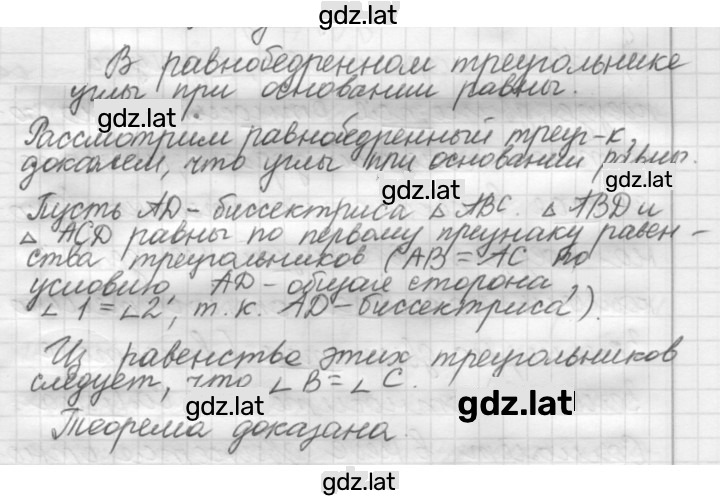 gdz.lat
В равнобедренном треугольнике
углы при основании равны.
gdz.lat
Рассмотрим равнобедренный треуг-к,
докажем, что углы при основании равны.
gdz.lat
gdz.lat
Пусть AD - биссектриса ▵ ABC. ▵ ABD и
▵ ACD равны по первому признаку равен-
ства треугольников (AB = AC по
условию, AD - общая сторона,
∠ 1 = ∠ 2, т.к. AD - биссектриса).
Из равенства этих треугольников
следует, что ∠ B = ∠ C.
gdz.lat
gdz.lat
Теорема доказана.
gdz.lat